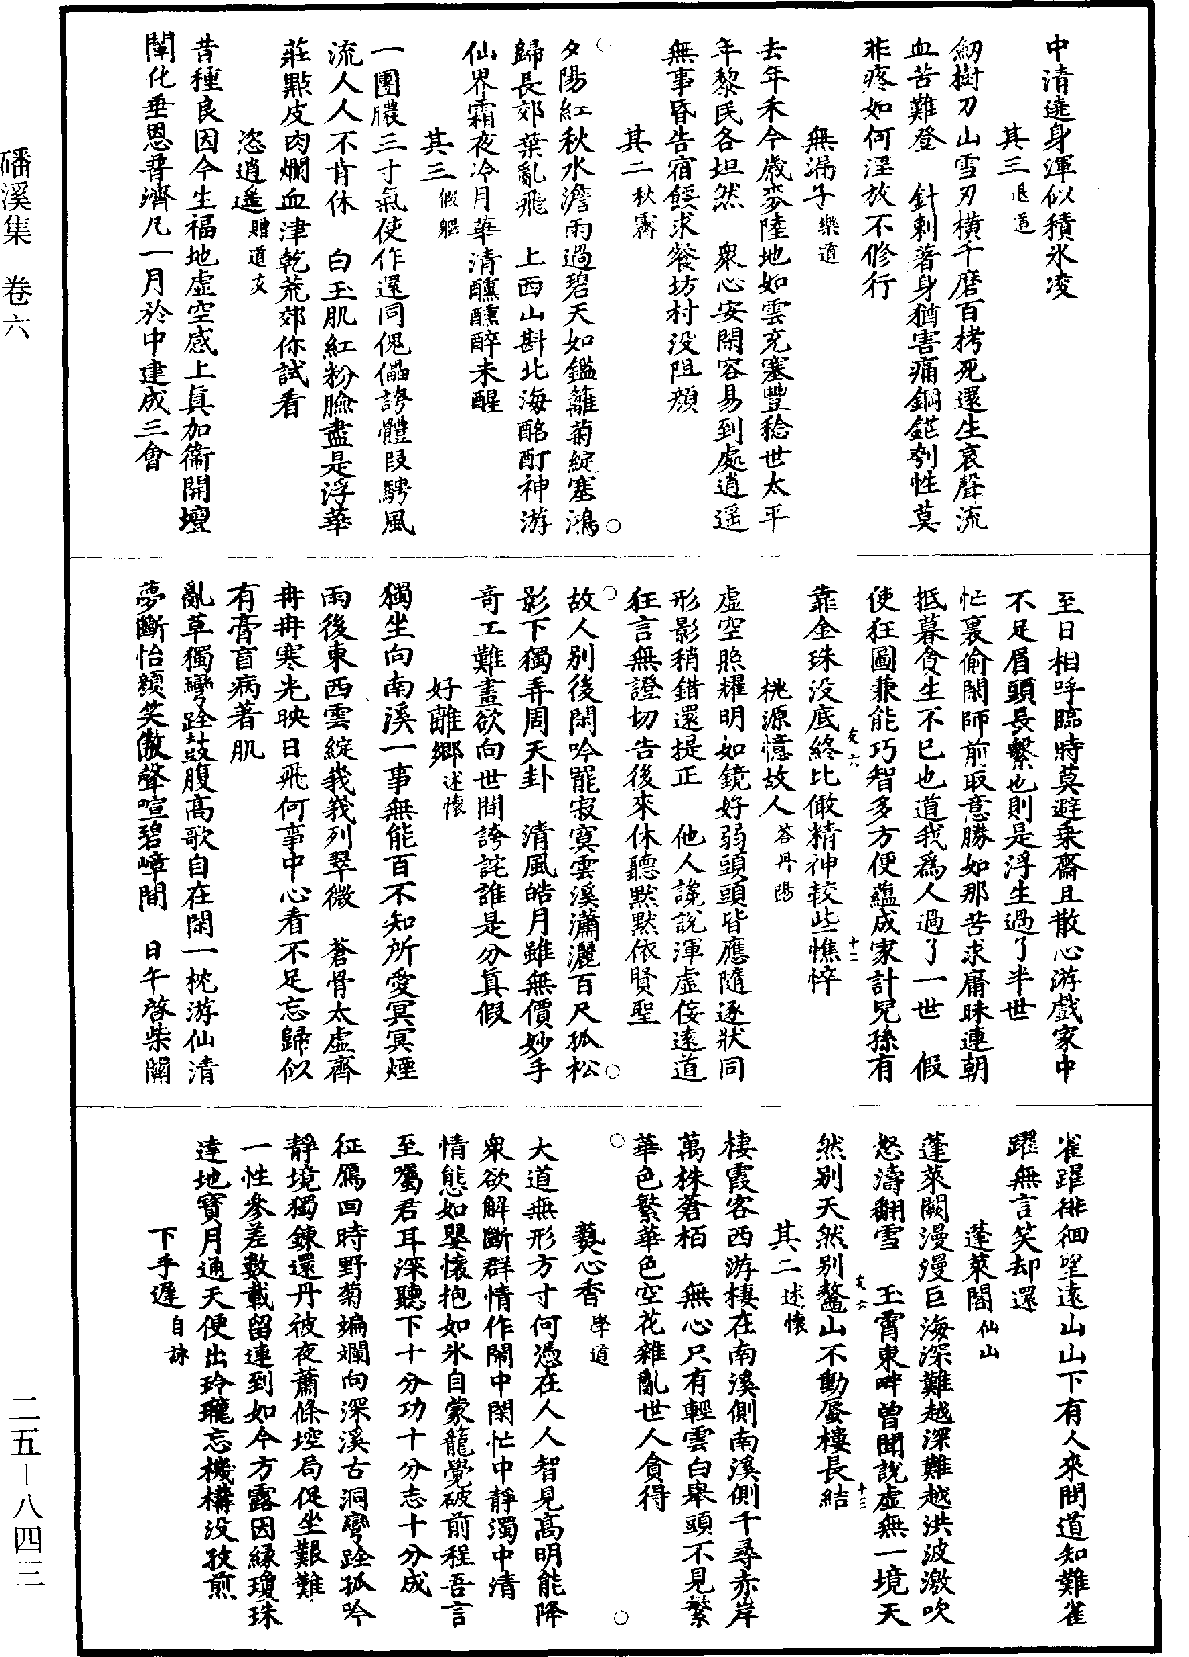 中清遶身渾似積氷凌
其三 退道
劒樹刀山雪刃横千磨百栲死還生哀聲流
血苦難登　針刺著身猶害痛鋼鎚刳性莫
非疼如何淫放不修行
無漏子 樂道
去年禾今歲麥陸地如雲充塞豐稔世太平
年黎民各坦然　衆心安閑容易到處逍遥
無事昏告宿餒求餐坊村没阻顔
其二 秋霽
夕陽紅秋水澹雨過碧天如鑑籬菊綻塞鴻
歸長郊葉亂飛　上西山斟北海酩酊神游
仙界霜夜冷月華清醺醺醉未醒
其三 假軀
一團膿三寸氣使作還同傀儡誇體段騁風
流人人不肯休　白玉肌紅粉臉盡是浮華
莊點皮肉爛血津乾荒郊你試看
恣逍遥 贈道友
昔種良因今生福地虚空感上真加衞開壇
闡化垂恩普濟凡一月於中建成三會
至日相呼臨時莫避乗齋且散心游戲家中
不足眉頭長繫也則是浮生過了半世
忙裏偷閑師前取意勝如那苦求庸昧連朝
抵暮貪生不已也道我爲人過了一世　假
使狂圖兼能巧智多方便蘊成家計兒孫有
靠金珠没底終比僌精神較些憔悴
友六
十二
桃源憶故人 答丹陽
虚空照耀明如鏡好弱頭頭皆應隨逐狀同
形影稍錯還提正　他人讒說渾虚佞遠道
狂言無證切告後來休聽默默依賢聖
故人別後閑吟罷寂寞雲溪瀟灑百尺孤松
影下獨弄周天卦　清風皓月雖無價妙手
奇工難畫欲向世間誇詫誰是分真假
好離鄉 述懷
獨坐向南溪一事無能百不知所愛冥冥煙
雨後東西雲綻峩峩列翠微　蒼骨太虚齊
冉冉寒光映日飛何事中心看不足忘歸似
有膏盲病著肌
亂草獨彎跧鼓腹髙歌自在閑一枕游仙清
夢斷怡顔笑傲聲喧碧嶂間　日午啓柴關
雀躍徘徊望遠山山下有人來問道知難雀
躍無言笑却還
蓬萊閣 仙山
蓬萊闕漫漫巨海深難越深難越洪波激吹
怒濤翻雪　玉霄東畔曽聞說虚無一境天
然别天然别鼇山不動蜃樓長結
友六
十三
其二 述懷
棲霞客西游棲在南溪側南溪側千尋赤岸
萬株蒼栢　無心尺有輕雲白舉頭不見繁
華色繁華色空花雜亂世人貪得
爇心香 學道
大道無形方寸何憑在人人智見髙明能降
衆欲解斷群情作閙中閑忙中靜濁中清
情態如嬰懷抱如氷自蒙籠覺破前程吾言
至囑君耳深聽下十分功十分志十分成
征鴈回時野菊斒斕向深溪古洞彎跧孤吟
靜境獨鍊還丹彼夜蕭條坐局促坐艱難
一性參差數載留連到如今方露因緣瓊珠
達地寳月通天便出玲瓏忘機構没孜煎
下手遲 自詠
磻溪集　卷六
二五—八四三